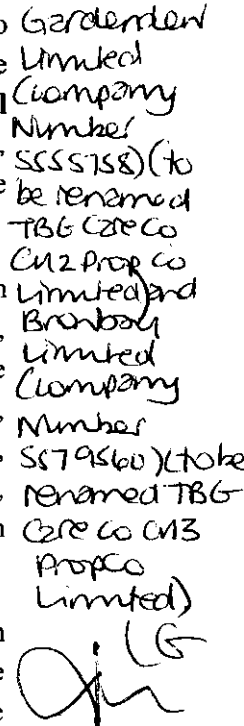 Gardenden
Limited
(Company
Number
5555758)(to
be renamed
TBG Care Co
CM2 Prop Co
Limited) and
Bronbay
Limited
(Company
Number
5579560)(to be
renamed TBG
Care Co CM3
PropCo
Limited)
LG